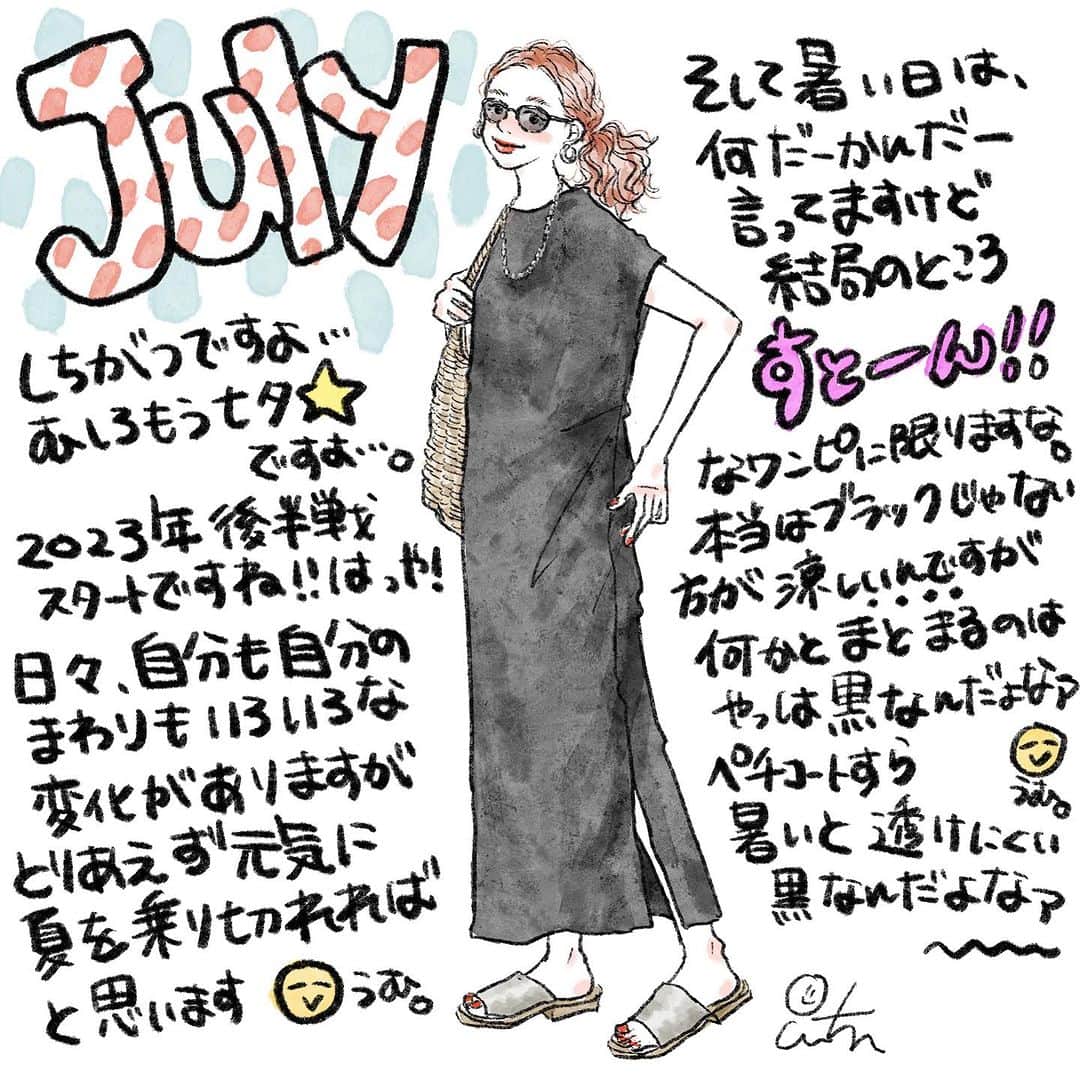 July
しちがつですよ…
むしろもう七夕
ですむ…。
2023年後半戦
スタートですね!!はっや!
日々、自分も自分の
まわりもいろいろな
変化がありますが
とりあえず元気に
夏を乗り切れれば
と思います うむ。
そして暑い日は、
何だーかんだー
言ってますけど
結局のところ
すとーん!!
なワンピに限りますな。
本当はブラックじゃない
方が涼しいんですが
何かとまとまるのは
やっぱ黒なんだよなァ
うむ。
ペチコートすら
暑いと透けにくい
黒なんだよなァ